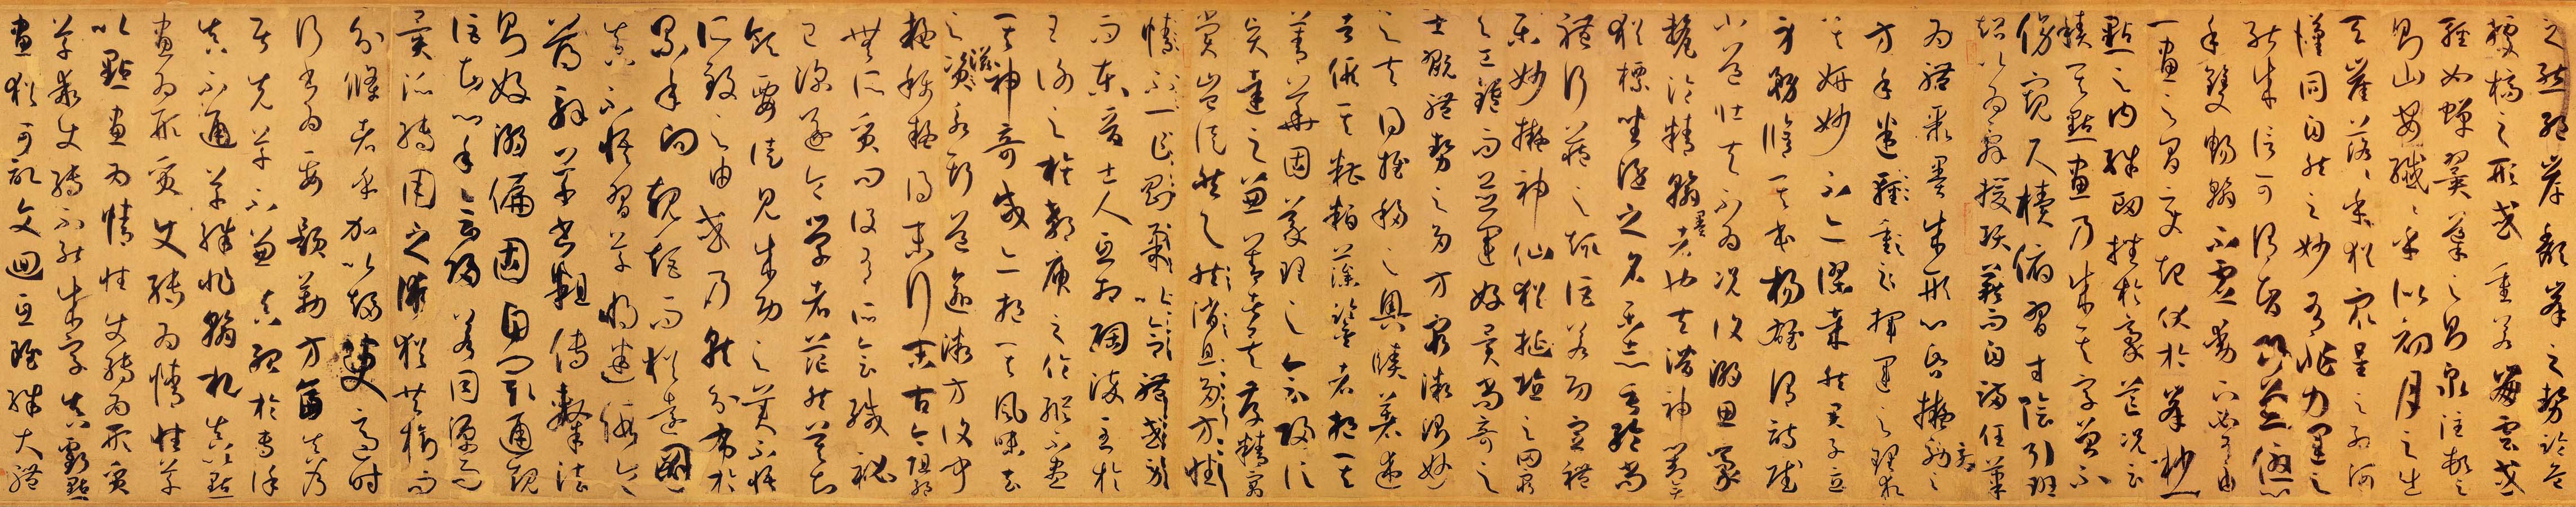 之態絕岸頹峰之勢臨危
據槁之形或重若崩雲或
輕如蟬翼導之則泉注頓之
則山安纖纖乎似初月之出
天崖落落乎猶眾星之列河
漢同自然之妙有非力運之
能成信可謂智巧兼優心
手雙暢翰不虛動下必有由
一畫之間變起伏於峰杪一
點之內殊衄挫於豪芒況云
積其點畫乃成其字曾不
傍窺尺牘俯習寸陰引班
超以為辭援項籍而自滿任筆
為體聚墨成形心昏擬效之
方手迷揮運之理求
其妍妙不亦謬哉然君子立
身務修其本楊雄謂詩賦
小道壯夫不為況復溺思豪
氂淪精翰墨者也夫潛神對弈
猶標坐隱之名樂志垂綸尚
體行藏之趣詎若功宣禮
樂妙擬神仙猶埏埴之罔窮
與工鑪而並運好異尚奇之
士翫體勢之多方窮微測妙
之夫得推移之奧賾著述
者假其糟粕藻鑒者挹其
菁華固義理之會歸信
賢達之兼善者矣存精寓
賞豈徒然與然消息多方性
情不一乍剛柔以合體
而東晉士人互相陶淬至於
王謝之族郗庾之倫縱不盡
其神奇咸亦挹其風味去
之滋永斯道愈微方復聞
疑稱疑得末行末古今阻絕
無所質問設有所會緘秘
已深遂令學者茫然莫知
領要徒見成功之美不悟
所致之由或乃就分布於
累年向規矩而猶遠圖
真不悟習草將迷假令
薄解草書粗傳隸法
則好溺偏固自閡通規
詎知心手會歸若同源而
異派轉用之術猶共樹而
分條者乎加以趨變適時
行書為要題勒方畐真乃
居先草不兼真殆於專謹
真不通草殊非翰札真以點
畫為形質使轉為情性草
以點畫為情性使轉為形質
草乖使轉不能成字真虧點
畫猶可記文迴互雖殊大體